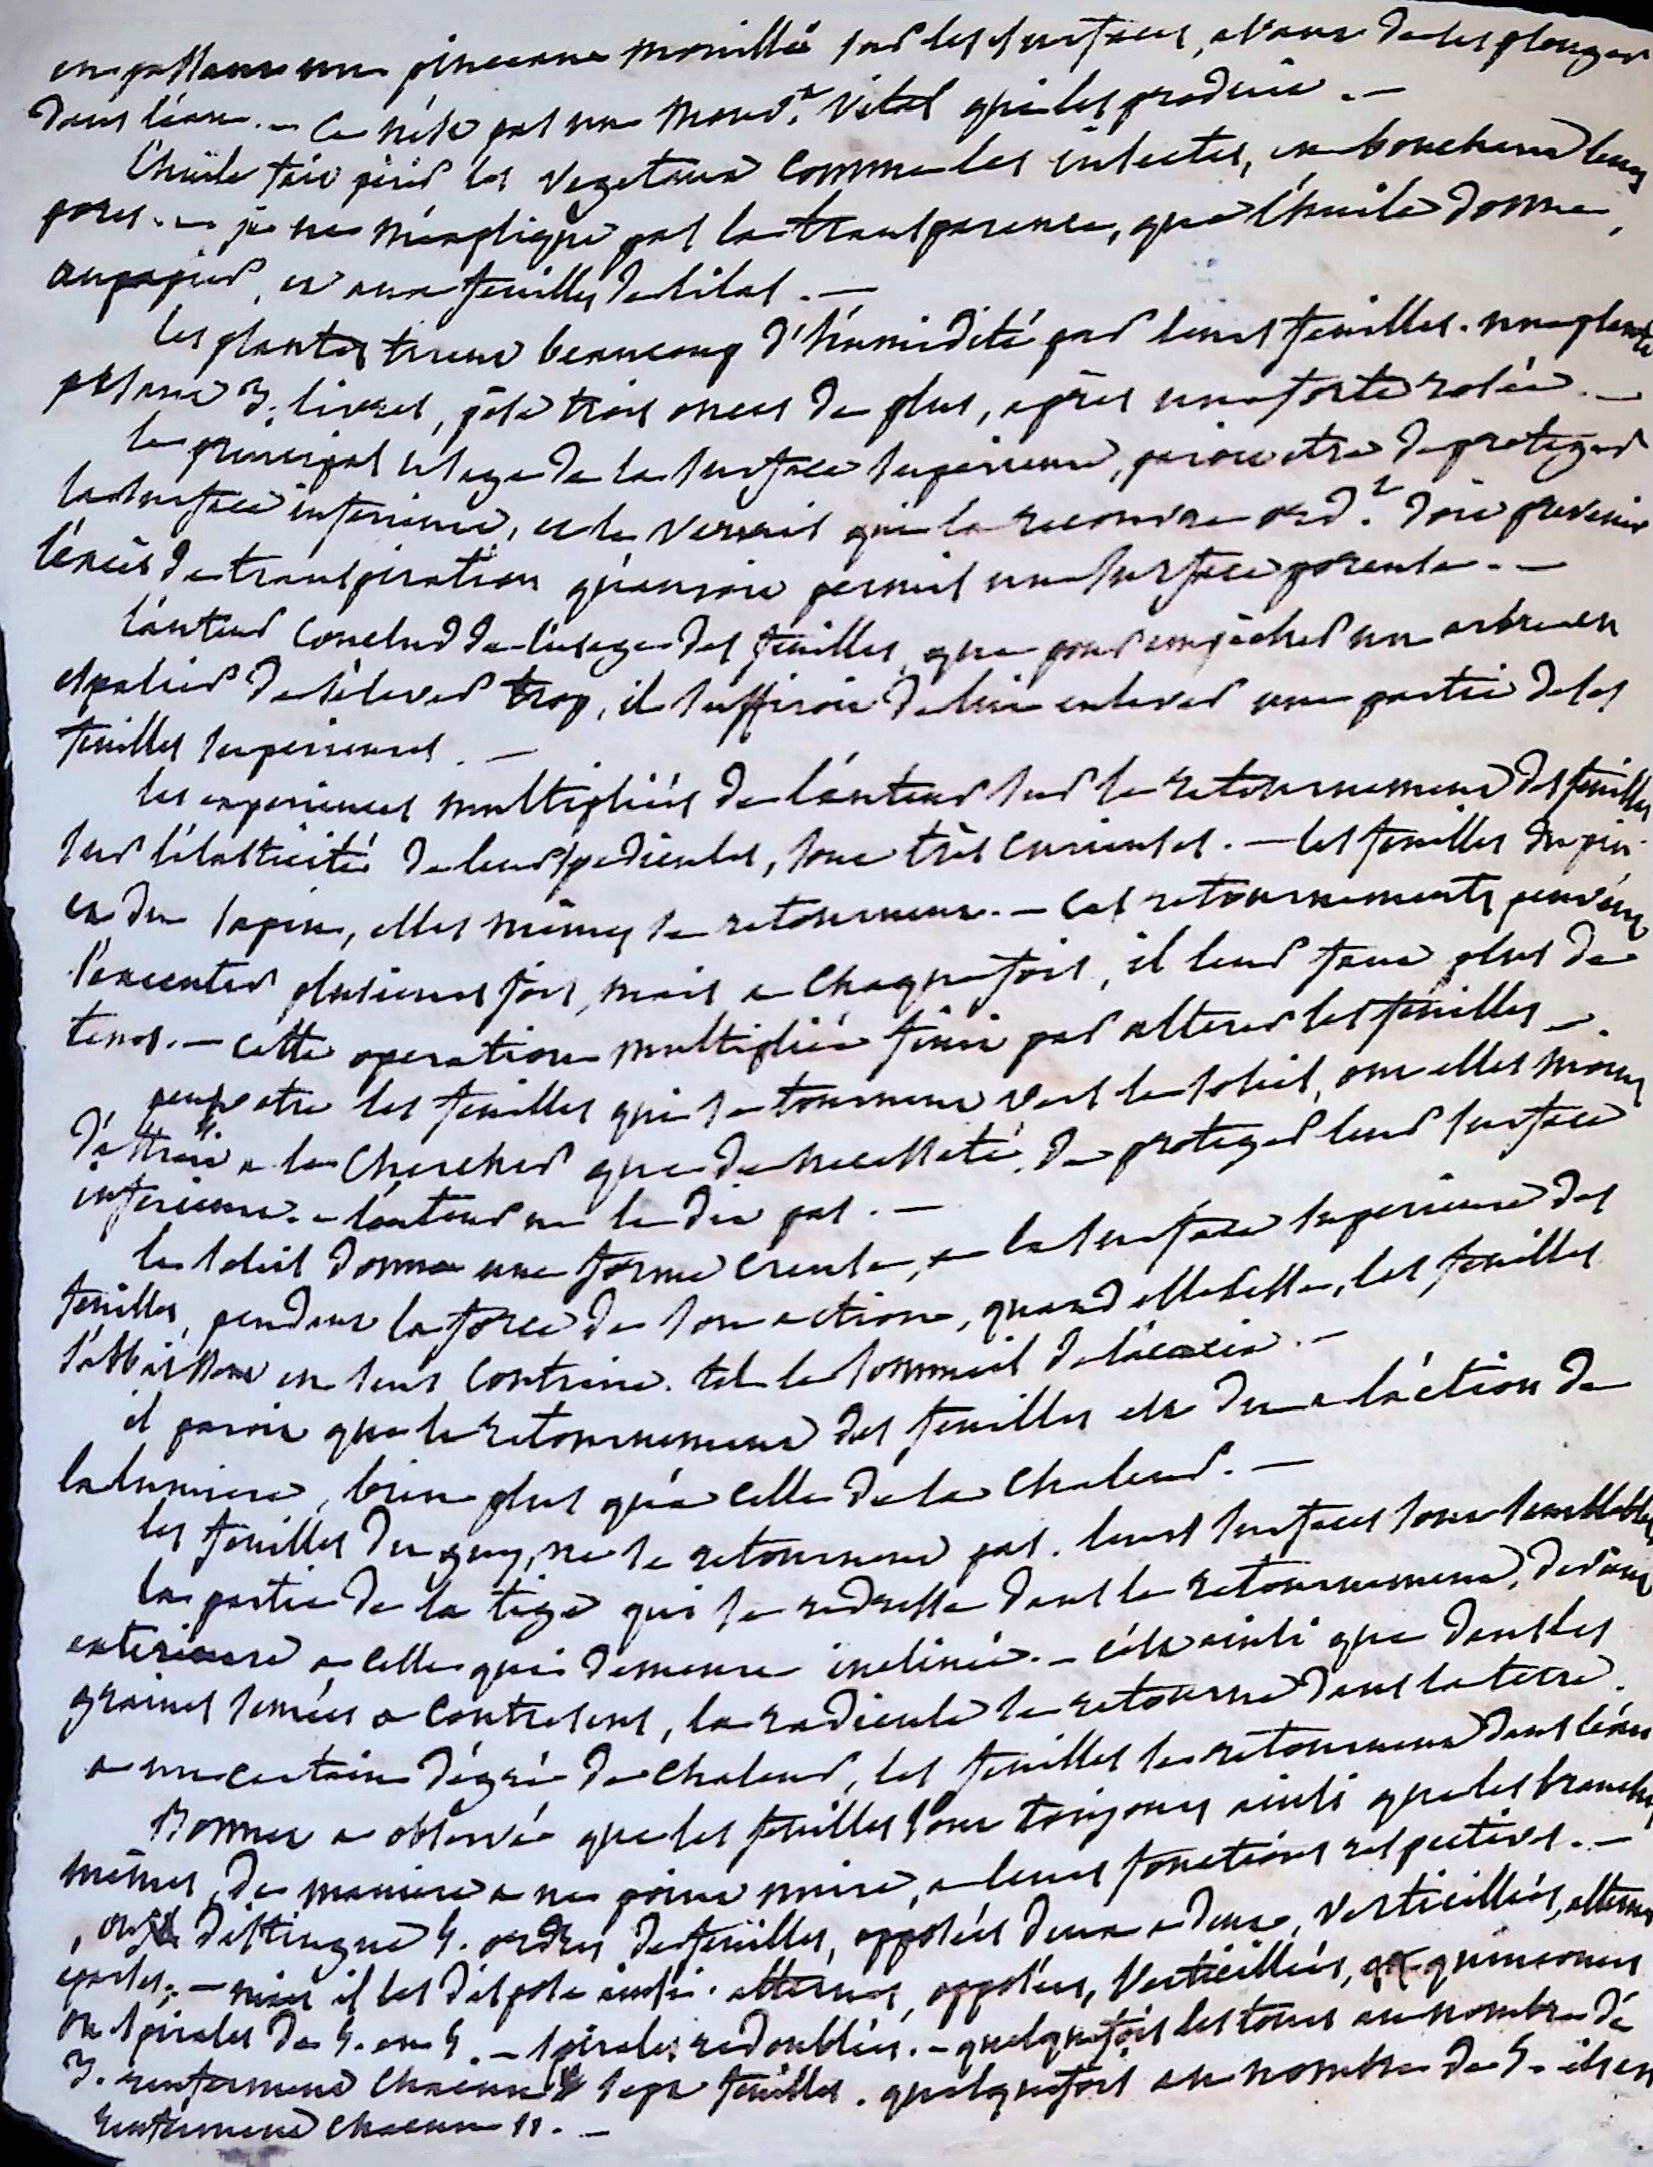 en passant un pinceau mouillé sur les surfaces, avant de les plonger
dans l'eau. — Ce n'est pas un mouv.t vital qui les produit. —
l'huile fait périr les vegetaux comme les insectes, en bouchant leurs
pores. — je ne m'explique pas la transparence, que l'huile donne,
au papier, et aux feuilles de lilas. —
les plantes tirent beaucoup d'humidité par leurs feuilles. une plante
pesant 3. livres, pèse trois onces de plus, après une forte rosée. —
le principal usage de la surface superieure, paroit etre de proteger
la surface inferieure, et le vernis qui la recouvre ord.t doit prevenir
l'excès de transpiration qu'auroit permis une surface poreuse. —
l'auteur conclud de l'usage des feuilles, que pour empêcher un arbre en
espalier de s'élever trop, il suffiroit de lui enlever une partie de ses
feuilles superieures. —
les experiences multipliées de l'auteur sur le retournement des feuilles
sur l'élasticité de leurs pedicules, sont très curieuses. — les feuilles du pin
et du sapin, elles mêmes se retournent. — Ces retournements peuvent
s'executer plusieurs fois, mais a chaque fois, il leur faut plus de
tems. — cette operation multipliée finit par alterer les feuilles —.
peut etre les feuilles qui se tournent vers le soleil, ont elles moins
d'attrait a le chercher que de necessité, de proteger leur surface
inferieure. — l'auteur ne le dit pas. —
le soleil donne une forme creuse, a la surface superieure des
feuilles, pendant la force de son action, quand elle cesse, les feuilles
s'abaissent en sens contraire. tel le sommeil de l'acacia. —
il paroit que le retournement des feuilles est du a l'action de
la lumiere, bien plus qu'a celle de la chaleur. —
les feuilles du guy, ne se retournent pas. leurs surfaces sont semblables
la partie de la tige qui se redresse dans le retournement, devient
exterieure a celle qui demeure inclinée. — c'est ainsi que dans les
graines semées a contresens, la radicule se retourne dans la terre.
a un certain dégré de chaleur, les feuilles se retournent dans l'eau
Bonnet a observé que les feuilles sont toujours ainsi que les branches
mêmes, de maniere a ne point nuire, a leurs fonctions respectives. —
on distingue 4. ordres de feuilles, opposées deux a deux, verticillées, alternes
eparses. — mais il les dispose ainsi. alternes, opposées, verticillées, quinconces
ou spirales de 5. en 5. — spirales redoublées. — quelquefois les tours au nombre de
3. renferment chacun sept feuilles. quelquefois au nombre de 5. ils en
renferment chacun 11. —